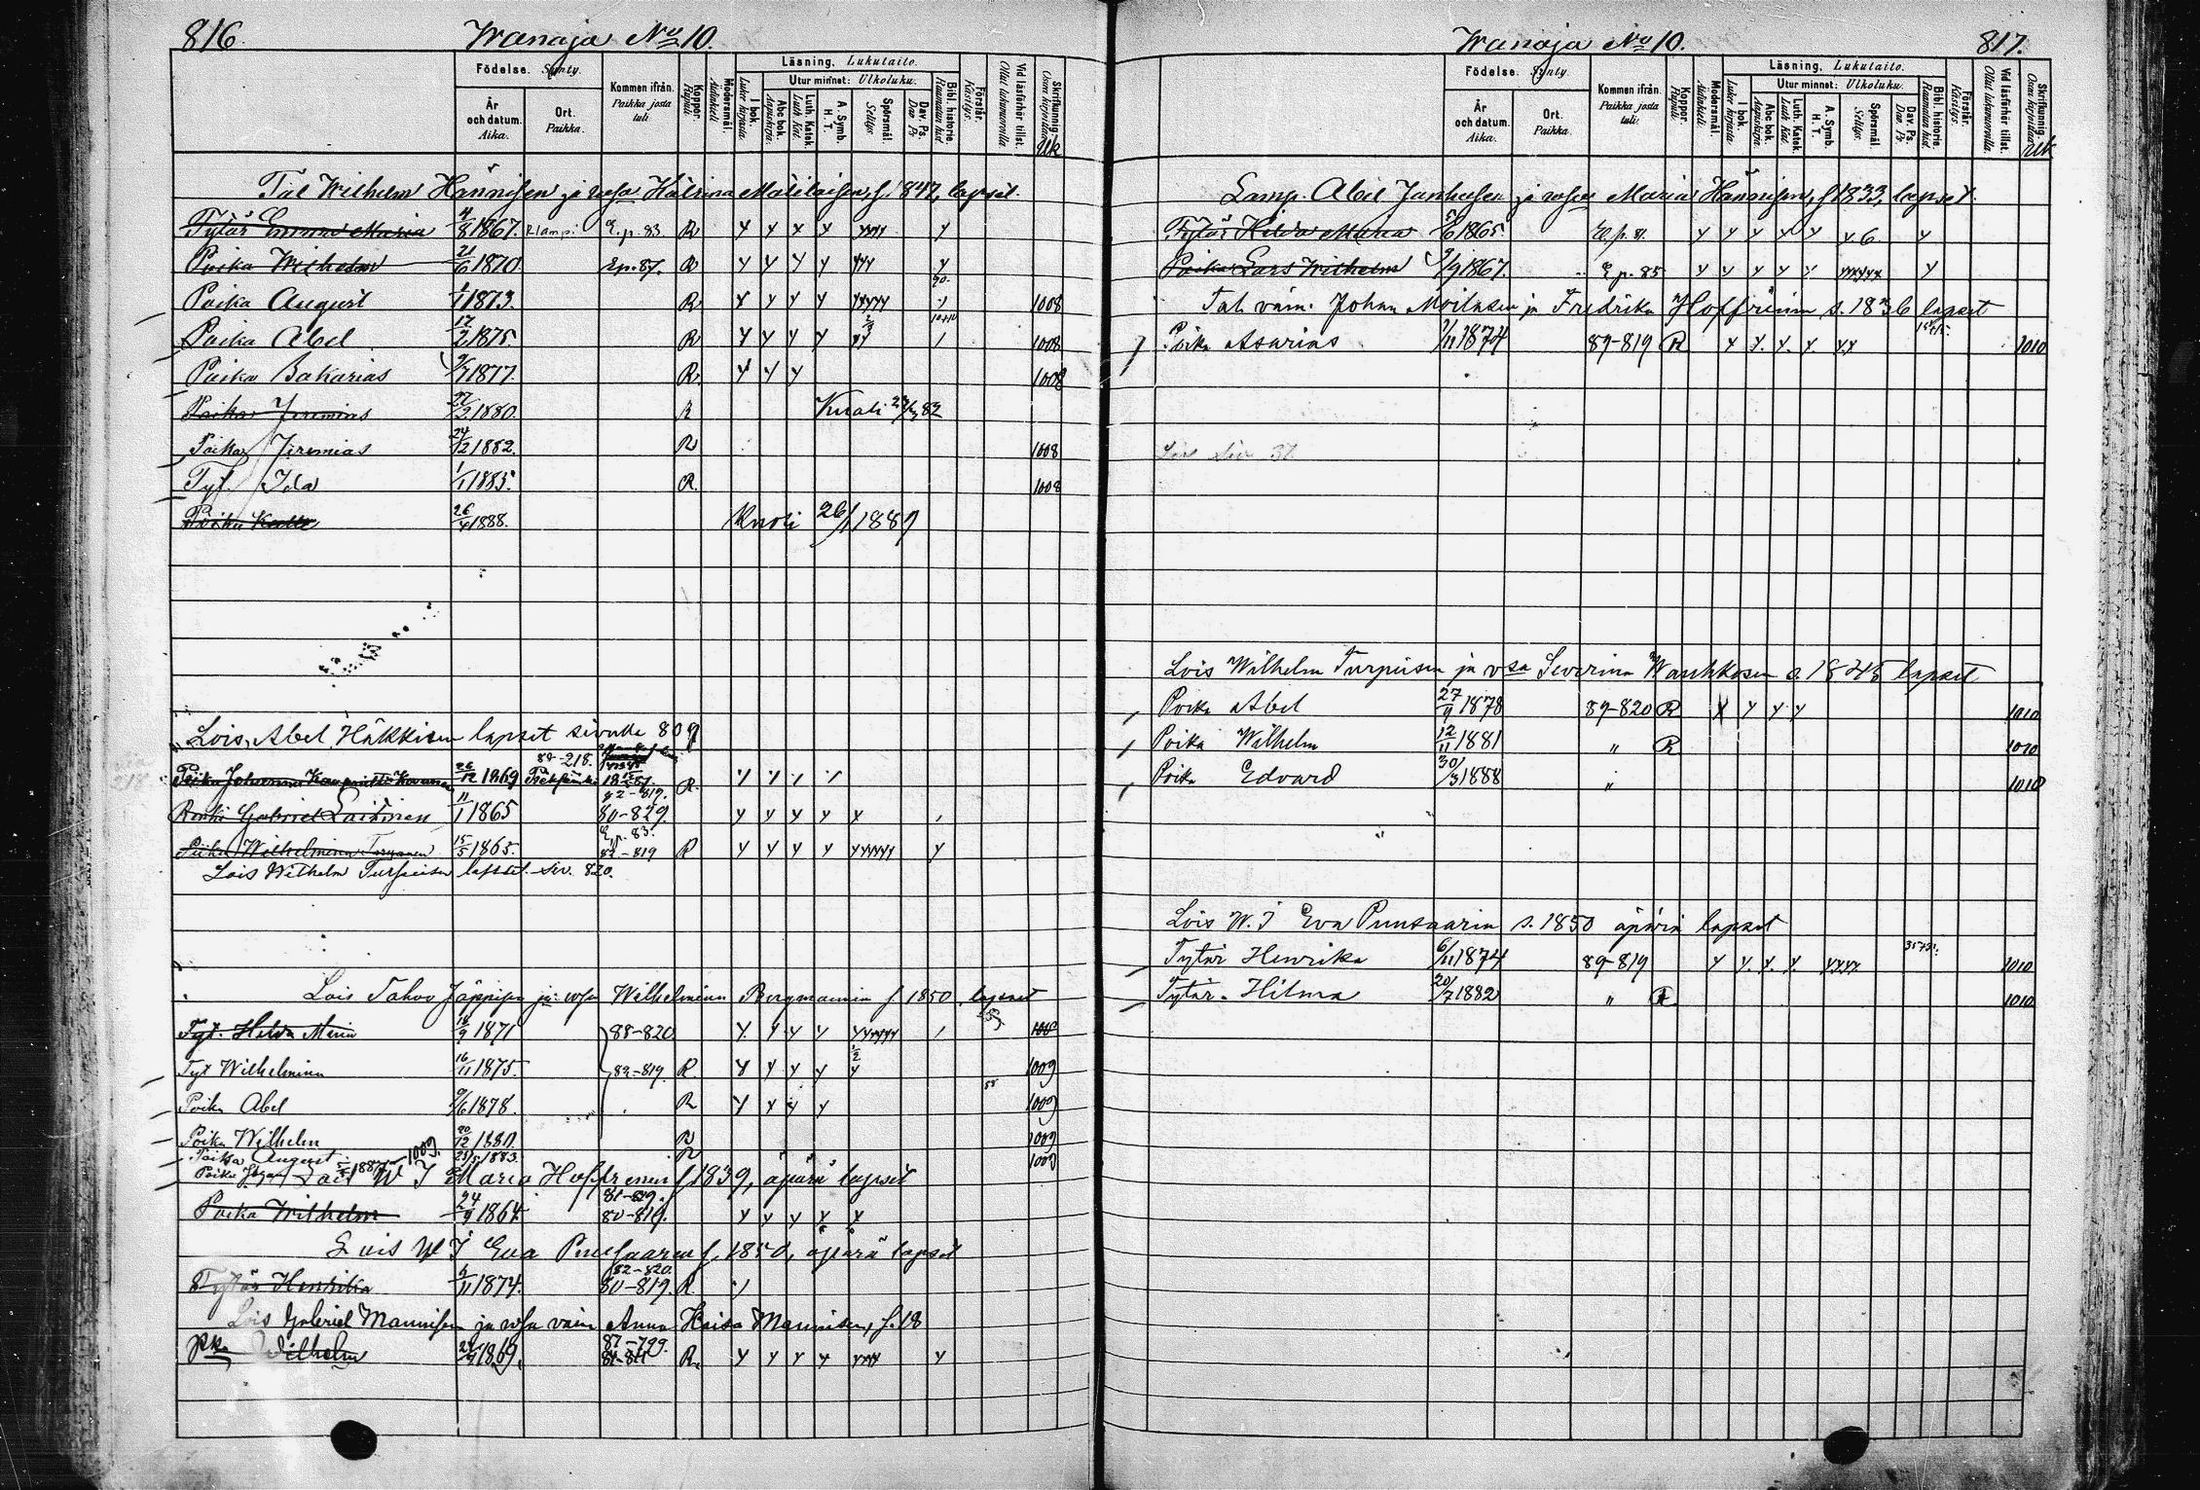 816.
Wanaja No 10.
Födelse. Synty.
År och datum. Aika.
Ort. Paikka.
Kommen ifrån. Paikka josta tuli
Koppor. Rupuli.
Modersmål. Äidinkieli.
Läsning. Lukutaito.
I bok. Luker kirjasta
Utur minnet: Ulkoluku.
Abc bok. Aapiskirja.
Luth. Katek. Luth. Kat.
A. Symb. H. T.
Spörsmål. Selitys.
Dav. Ps. Daw. Ps.
Bibl. historie. Raamatun hist
Förstår. Käsitys.
Vid läsförhör tillst. Ollut lukuvuorolla.
Skrifkunnig. Osaa kirjoittaa
Ulk
Tal Wilhelm Hänninen ja wsa Katrina Matilainen, s. 1847, lapset.
Tytär Emma Maria 4/8 1867. R lampi E. p. 83 R
Poika Wilhelm 21/6 1870. E p. 87. R
Poika August 1/1 1873. R 1008
Poika Abel 17/2 1875 R 1008
Poika Sakarias 9/7 1877. R. 1008
Poika Jeremias 27/2 1880. R Kuoli 82
Poika Jeremias 24/2 1882. R 1008
Tyt. Ida 1/1 1885. R. 1008
Poika Kalle 26/4 1888. Kuoli 26/1 1889
Lois. Abel Häkkisen lapset sivulla 809
88-218.
Poika Johannes 26/12 1869 R.
82-819.
Renki Gabriel Laitinen 11/1 1865 80-829.
E. p. 83.
Piika Wilhelmina 15/5 1865. 82-819 R
Lois Wilhelm Turpeisen lapset siv. 820.
Lois Tahvo Jäppinen ja wsa Wilhelmina Bergmannin s. 1850 lapset
Tyt. Hilda Maria 18/9 1871 88-820
Tyt Wilhelmina 16/11 1875. 82-819. R 1009
Poika Abel 9/6 1878. R 1009
Poika Wilhelm 20/12 1880. R 1009
Poika August 25/5 1883. 1009
Lois W I Maria Hoffrenin s. 1839, äpärä lapset
81-829.
Poika Wilhelm 24/9 1864. 80-819.
Lois W I Eva Puusaaren s. 1850, äpärä lapset
82-820.
Tytär Henrika 6/11 1874. 80-819. R.
Lois Gabriel Manninen ja wsa vaim Anna Kaisa Manninen, s. 18
87-799.
Pk. Wilhelm 24/9 1869. R.
Wanaja No 10.
817.
Födelse. Synty.
År och datum. Aika.
Ort. Paikka.
Kommen ifrån. Paikka josta tuli:
Koppor. Rupuli.
Modersmål. Äidinkieli.
Läsning. Lukutaito.
I bok. Luker kirjasta
Utur minnet: Ulkoluku.
Abc bok. Aapiskirja.
Luth. Katek. Luth. Kat.
A. Symb. H. T.
Spörsmål Selitys.
Dav. Ps. Daw Ps
Bibl. historie. Raamatun hist.
Förstår. Käsitys.
Vid läsförhör tillst. Ollut lukuvuorolla.
Skrifkunnig. Osaa kirjoittaa
Ulk
Lamp. Abel Janhusen ja wsa Maria Hänninen, s 1833, lapset.
Tytär Hilda Maria 5/6 1865.
Poika Lars Wilhelm 9/9 1867. E p. 85
Tal. väin. Johan Moilasen ja Fredrika Hoffrénin s. 1836 lapset
Poika Asarias 7/11 1874 89-819 R 1010
Lois Wilhelm Turpeisen ja vsa Severina Wauhkosen s. 1845 lapset
Poika Abel 27/9 1878 89-820 R 1010
Poika Wilhelm 12/11 1881 " R 1010
Poika Edvard 30/3 1888 " 1010
Lois W. I Eva Puusaarin s. 1850 äpärä lapset
Tytär Henrika 6/11 1874 89-819 1010
Tytär. Hilma 20/7 1882 " R 1010